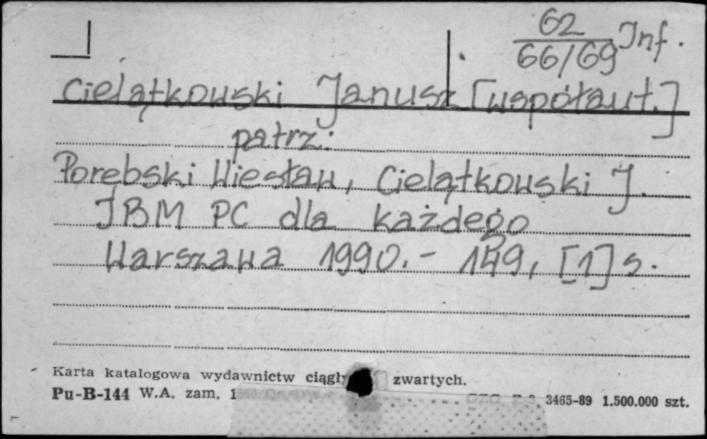 62
66/69 Inf.
Cielątkowski Janusz [współaut.]
patrz:
Porebski Wiesław, Cielątkowski J.
IBM PC dla każdego
Warszawa 1990.- 149, [1] s.
Karta katalogowa wydawnictw ciągł zwartych.
Pu-B-144 W.A. zam. 1 3465-89 1.500.000 szt.